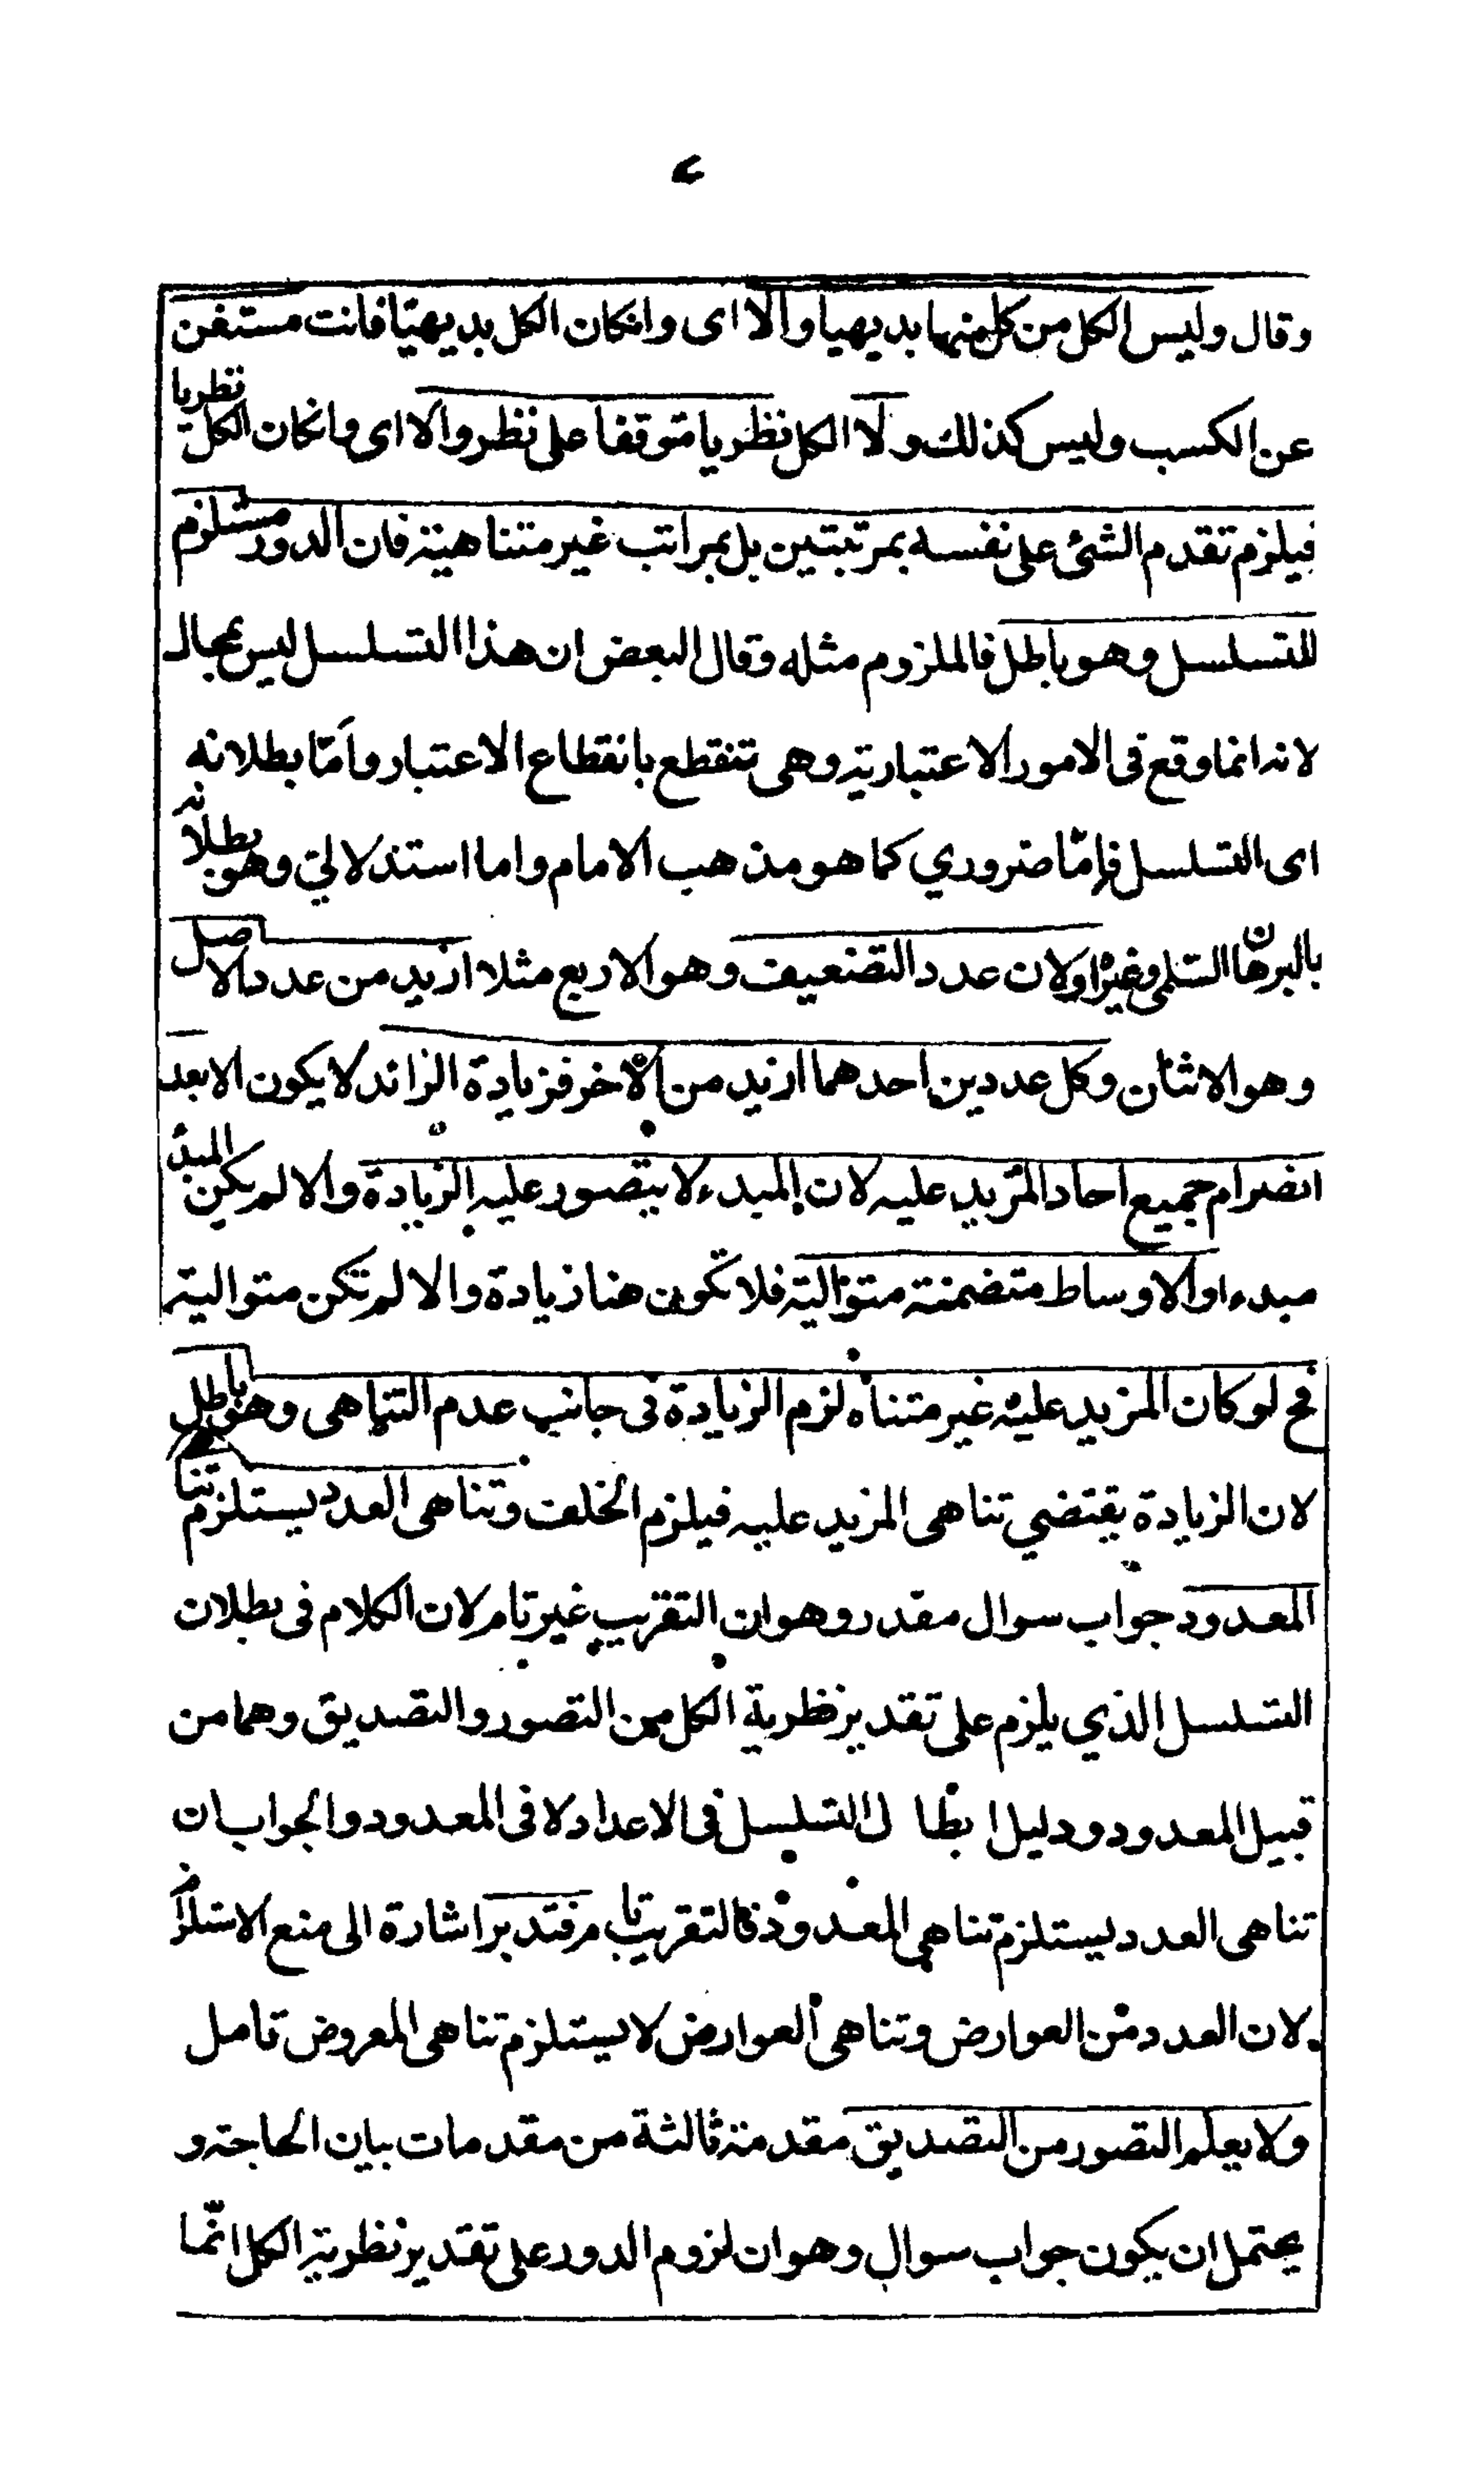 وقال وليس الكل من كل منهما بديهيا والا اى وانكان الكل بديهيّا فانت مستغن
عن الكسب وليس كذلك ولا الكل نظريا متوقفا على نظر والا اى وانكان الكل نظريا
فيلزم تقدم الشئ على نفسه بمرتبتين بل بمراتب غير متناهية فان الدور مستلزم
للتسلسل وهو باطل فالملزوم مثله وقال البعض ان هذا التسلسل ليس بمحال
لانه انما وقع فى الامور الاعتبارية وهى تنقطع بانقطاع الاعتبار وأمّا بطلانه
اى التسلسل فإمّا ضروري كما هو مذهب الامام واما استدلالي وهو بطلانه
بالبرهان السّلمى وغيره اولان عدد التضعيف وهو الاربع مثلا ازيد من عدد الاصل
وهو الاثنان وكل عددين احدهما ازيد من الاخر فزيادة الزائد لا يكون الا بعد
انصرام جميع احاد المزيد عليه لان المبدء لا يتصور عليه الزيادة والا لم يكن المبدء
مبدء او الاوساط متضمنة متوالية فلا تكون هنا زيادة والا لم تكن متوالية
فح لو كان المزيد عليه غير متناه لزم الزيادة فى جانب عدم التناهى وهو باطل
لان الزيادة يقتضي تناهى المزيد عليه فيلزم الخلف وتناهى العدد يستلزم تنا
المعدود جواب سوال مقدر وهو ان التقريب غير تام لان الكلام فى بطلان
التسلسل الذي يلزم على تقدير نظرية الكل من التصور والتصديق وهما من
قبيل المعدود ودليل ابطا ل التسلسل فى الاعداد لا فى المعدود والجواب ان
تناهى العدد يستلزم تناهى المعدود فالتقريب تام فتدبر اشارة الى منع الاستلزام
لان العدد من العوارض وتناهى العوارض لا يستلزم تناهى المعروض تامل
ولا يعلم التصور من التصديق مقدمة ثالثة من مقدمات بيان الحاجة و
يحتمل ان يكون جواب سوال وهو ان لزوم الدور على تقدير نظرية الكل انّما